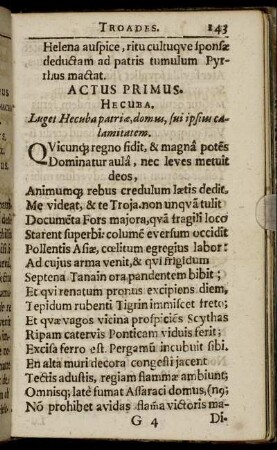 TROADES. 143
Helena auspice, ritu cultuqve sponsæ
deductam ad patris tumulum Pyr-
rhus mactat.
ACTUS PRIMUS.
HECUBA.
Luget Hecuba patriæ, domus, sui ipsius ca-
lamitatem.
QVicunq; regno fidit, & magnâ potẽs
Dominatur aulâ, nec leves metuit
deos,
Animumq; rebus credulum lætis dedit,
Me videat, & te Troja. non unqvã tulit
Documẽta Fors majora, qvã fragili loco
Starent superbi: columẽ eversum occidit
Pollentis Asiæ, cœlitum egregius labor:
Ad cujus arma venit, & qvi frigidum
Septena Tanain ora pandentem bibit;
Et qvi renatum pronus excipiens diem,
Tepidum rubenti Tigrin immiscet freto;
Et qvæ vagos vicina prospiciẽs Scythas
Ripam catervis Ponticam viduis ferit;
Excisa ferro est. Pergamũ incubuit sibi.
En alta muri decora congesti jacent
Tectis adustis, regiam flammæ ambiunt;
Omnisq; latè fumat Assaraci domus, (nq;
Nõ prohibet avidas flãma victoris ma-
G 4 Di-